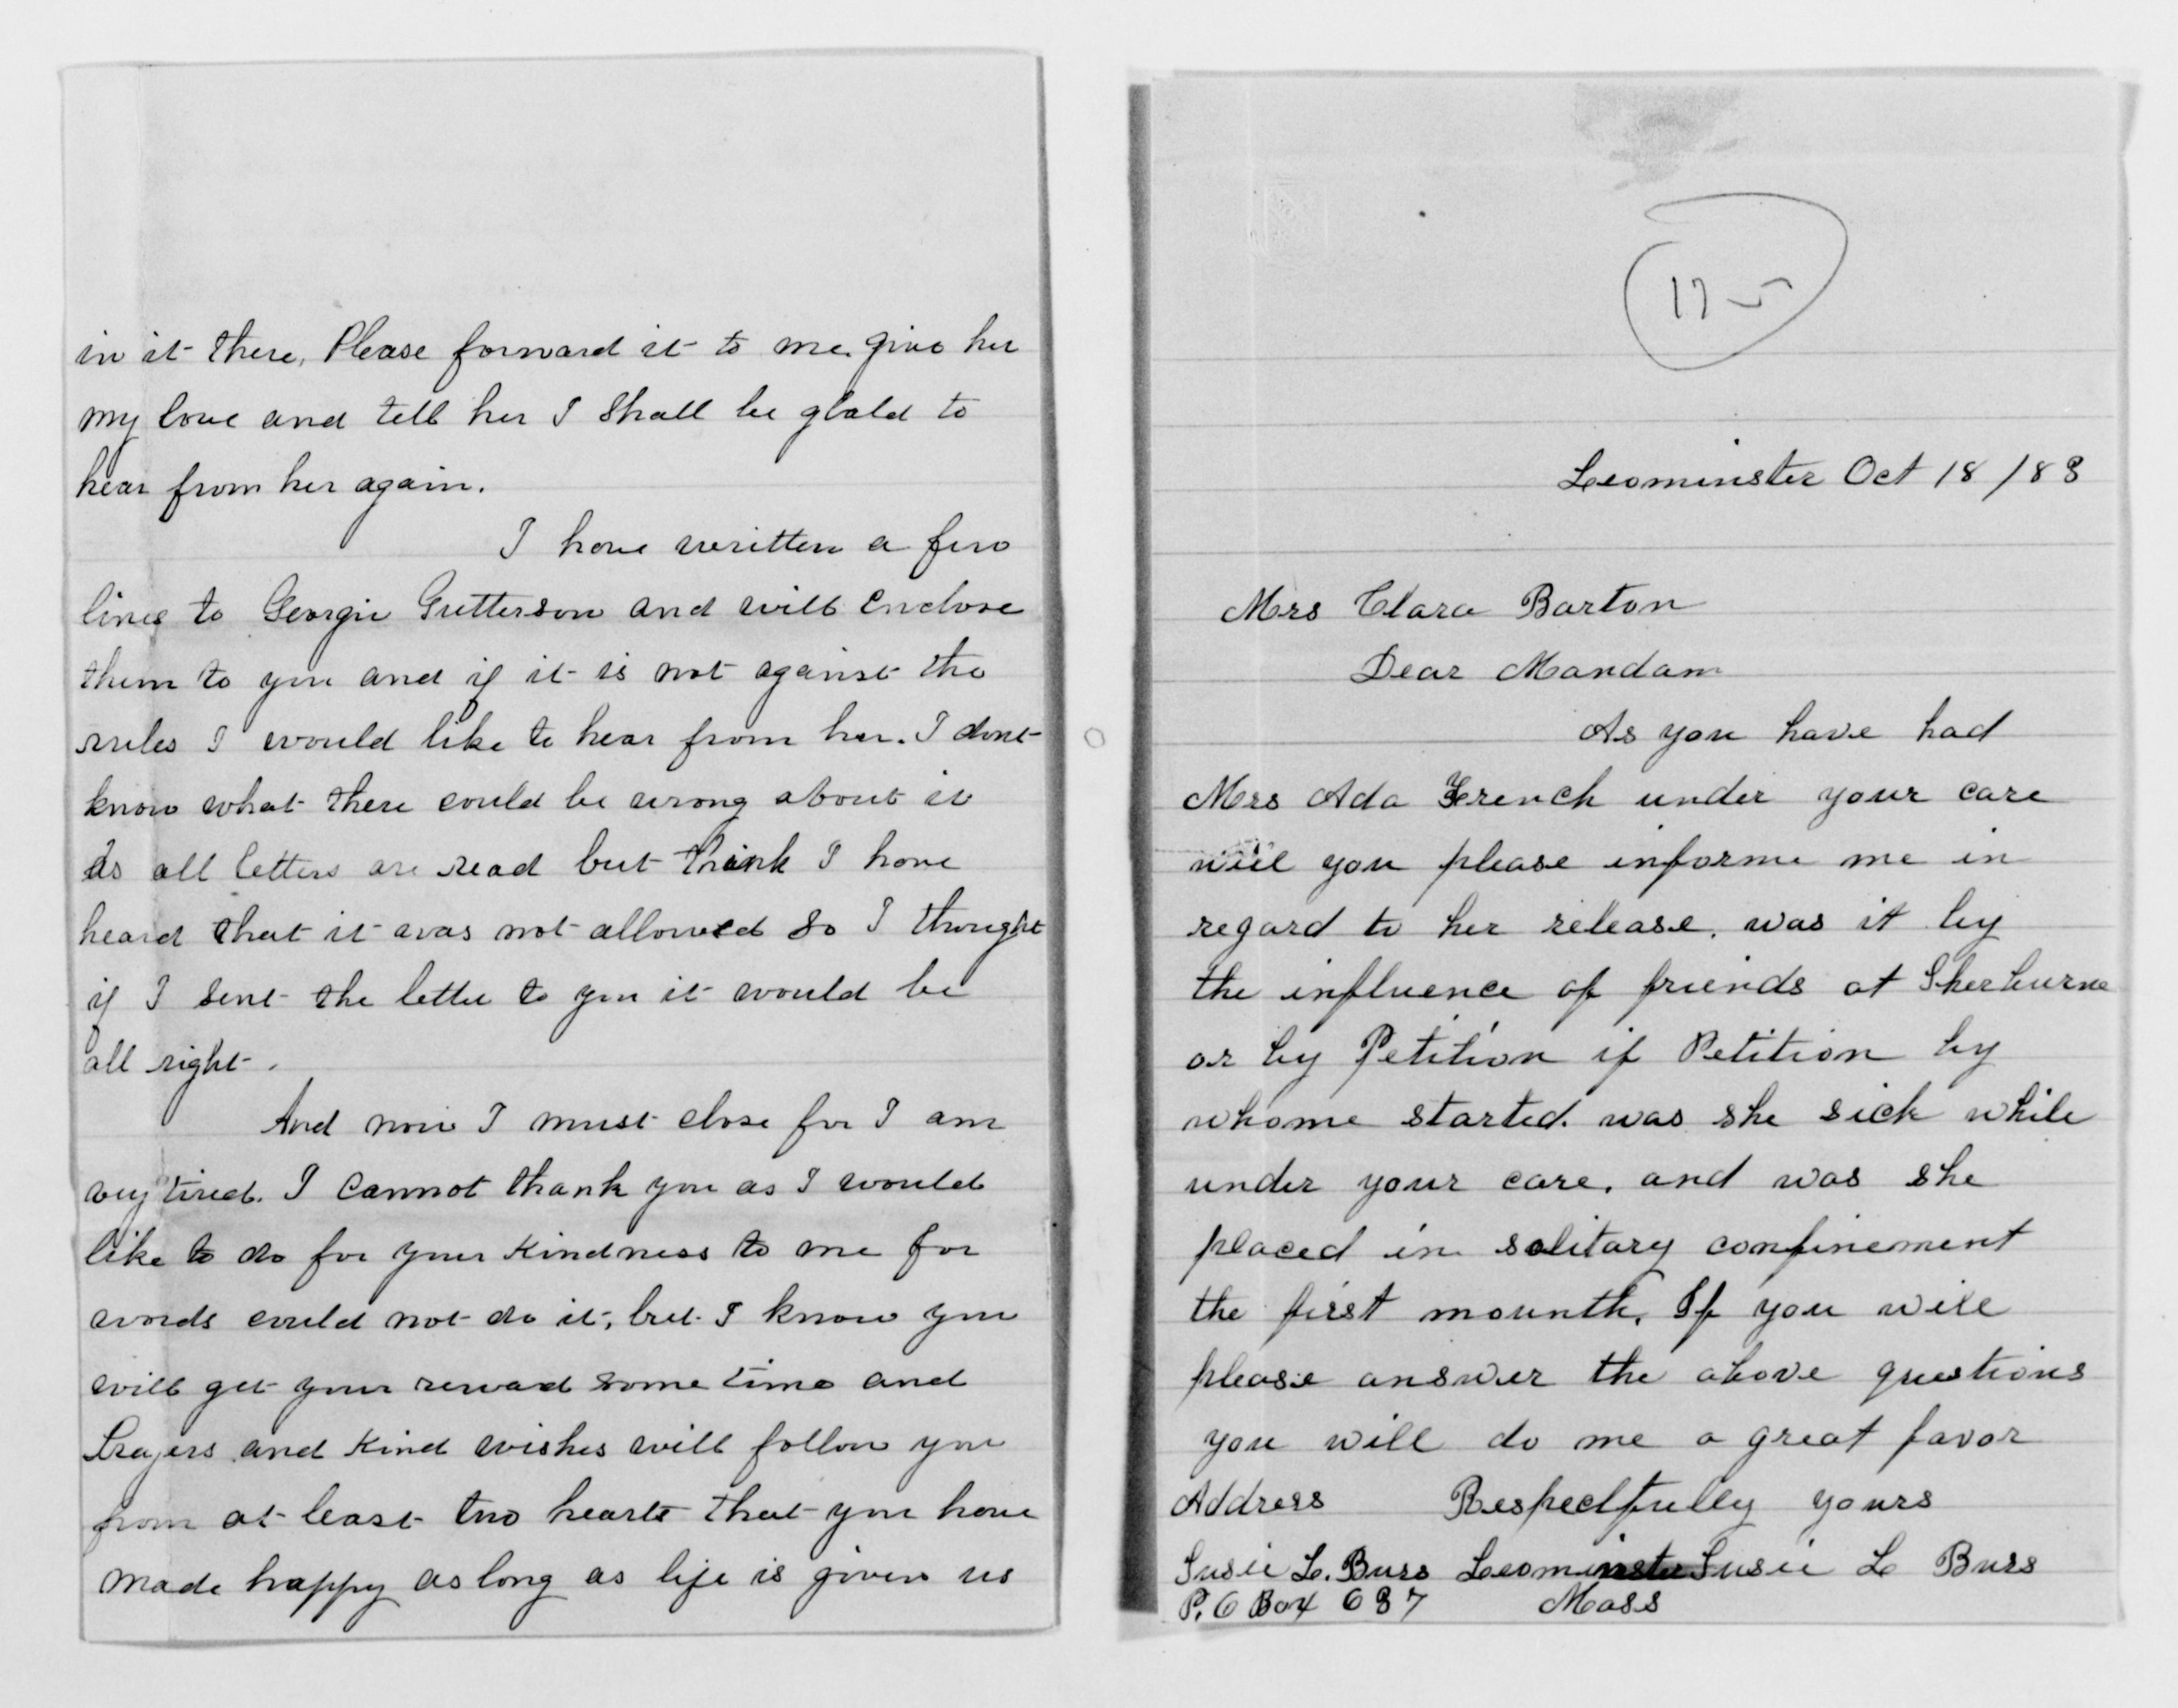 in it there, Please forward it to me. give her
my love and tell her I shall be glald to
hear from her again.
I have written a few
lines to Georgie Gutterson and will enclose
them to you and if it is not against the
rules I would like to hear from her. I dont
know what there could be wrong about it
As all letters are read but think I have
heard that it was not allowed so I thought
if I sent the letter to you it would be
all right.
And now I must close for I am
very tired. I cannot thank you as I would
like to do for your kindness to me for
words could not do it, but I know you
will get your reward some time and
Prayers and kind wishes will follow you
from at least two hearts that you have
made happy as long as life is given us
175
Leominster Oct 18/83
Mrs Clara Barton
Dear Mandam
As you have had
Mrs Ada French under your care
will you please informe me in
regard to her release. was it by
the influence of friends at Sherburne
or by Petition if Petition by
whome started. was she sick while
under your care. and was she
placed in solitary confinement
the first mounth. If you will
please answer the above questions
you will do me a great favor
Address Respectfully yours
Susie L. Burs Leominster Susie L Burs
P. O Box 687 Mass